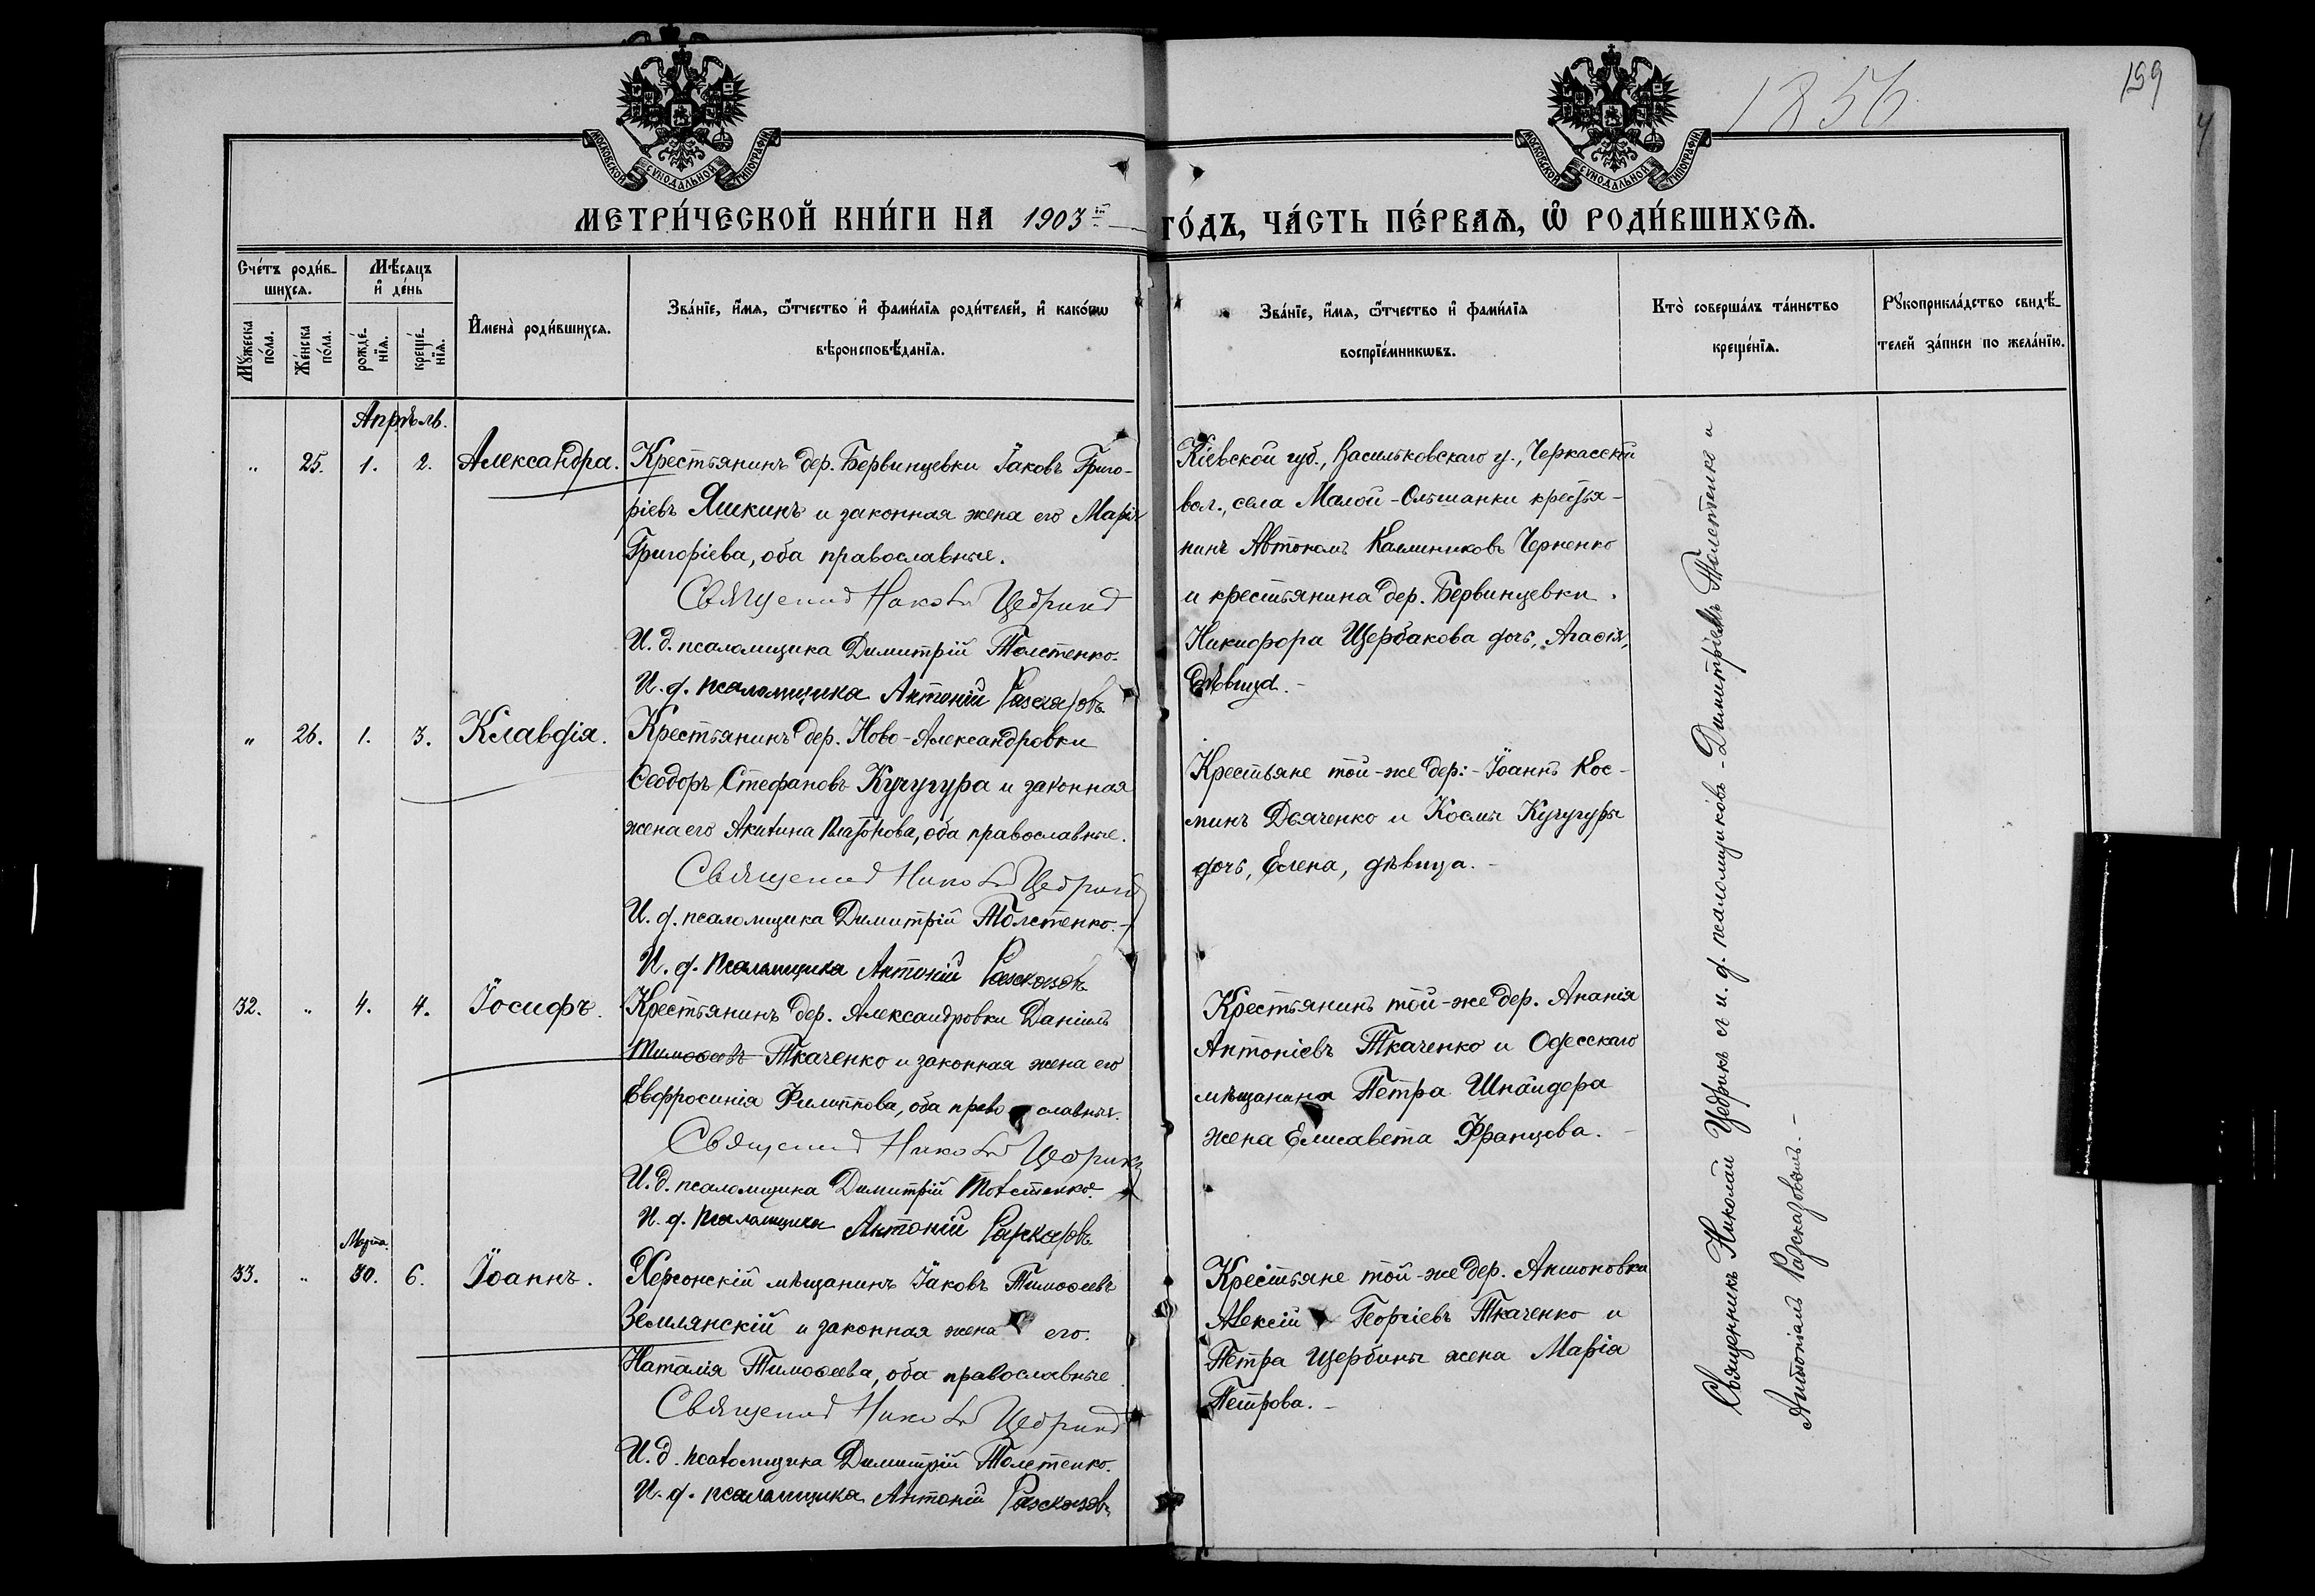 1856
199
МОСКОВСКОЙ СѴНОДАЛЬНОЙ ТИПОГРАФІИ
МОСКОВСКОЙ СѴНОДАЛЬНОЙ ТИПОГРАФІИ
МЕТРИ́ЧЕСКОЙ КНИ́ГИ НА 1903 ГО́ДЪ, ЧА́СТЬ ПЕ́РВАѦ, Ѡ҆ РОДИ́ВШИХСѦ.
Сче́тъ роди́в-
шихсѧ.
Мѣ́сяцъ
и҆ де́нь
Мꙋ́жеска по́ла.
Же́нска по́ла.
рожде́-
нїѧ.
креще́-
нїѧ.
И҆мена̀ роди́вшихсѧ.
Зва́нїе, и҆́мѧ, ѻ҆́тчество и҆ фами́лїѧ роди́телей, и҆ како́гѡ
вѣроисповѣ́данїѧ.
Зва́нїе, и҆́мѧ, ѻ҆́тчество и҆ фами́лїѧ
воспрїе́мникѡвъ.
Кто̀ соверша́лъ та́инство
креще́нїѧ.
Рꙋкоприкла́дство свидѣ́-
телей за́писи по жела́нїю.
Апрѣль.
" 25. 1. 2. Александра.
Крестьянинъ дер. Бервинцевки Іаковъ Григо-
ріевъ Яшкинъ и законная жена его Марія
Григоріева, оба православные.
Священикъ Николай Цедрикъ
И. д. псаломщика Димитрій Толстенко.
И. д. псаломщика Антоній Разсказовъ
Кіевской губ., Васильковскаго у., Черкасской
вол., села Малой-Ольшанки крестья-
нинъ Автономъ Каллиниковъ Черненко
и крестьянина дер. Бервинцевки
Никифора Щербакова дочь, Агаѳія,
дѣвица.-
" 26. 1. 3. Клавдія.
Крестьянинъ дер. Ново-Александровки
Ѳеодоръ Стефановъ Кучугура и законная
жена его Акилина Платонова, оба православные.
Священикъ Николай Цедрикъ
И. д. псаломщика Димитрій Толстенко.-
И. д. псаломщика Антоній Разсказовъ
Крестьяне той-же дер:- Іоаннъ Кос-
минъ Дьяченко и Космы Кучугуры
дочь, Елена, дѣвица.-
32. " 4. 4. Іосифъ.
Крестьянинъ дер. Александровки Даніилъ
Тимоѳеевъ Ткаченко и законная жена его
Евфросинія Филиппова, оба православные.
Священикъ Николай Цедрикъ
И. д. псаломщика Димитрій Толстенко.
И. д. псаломщика Антоній Разсказовъ
Крестьянинъ той-же дер. Ананія
Антоніевъ Ткаченко и Одесскаго
мѣщанина Петра Шнайдера
жена Елисавета Францова.-
Марта.
33. " 30. 6. Іоаннъ.
Херсонскій мѣщанинъ Іаковъ Тимоѳеевъ
Землянскій и законная жена его
Наталія Тимоѳеева, оба православные
Священикъ Николай Цедрикъ
И. д. псаломщика Димитрій Толстенко.
И. д. псаломщика Антоній Разсказовъ
Крестьяне той-же дер. Антоновки
Алексій Георгіевъ Ткаченко и
Петра Щербины жена Марія
Петрова.-
Священникъ Николай Цедрикъ съ и. д. псаломщиковъ - Димитріемъ Толстенко и
Антоніемъ Разсказовымъ.-